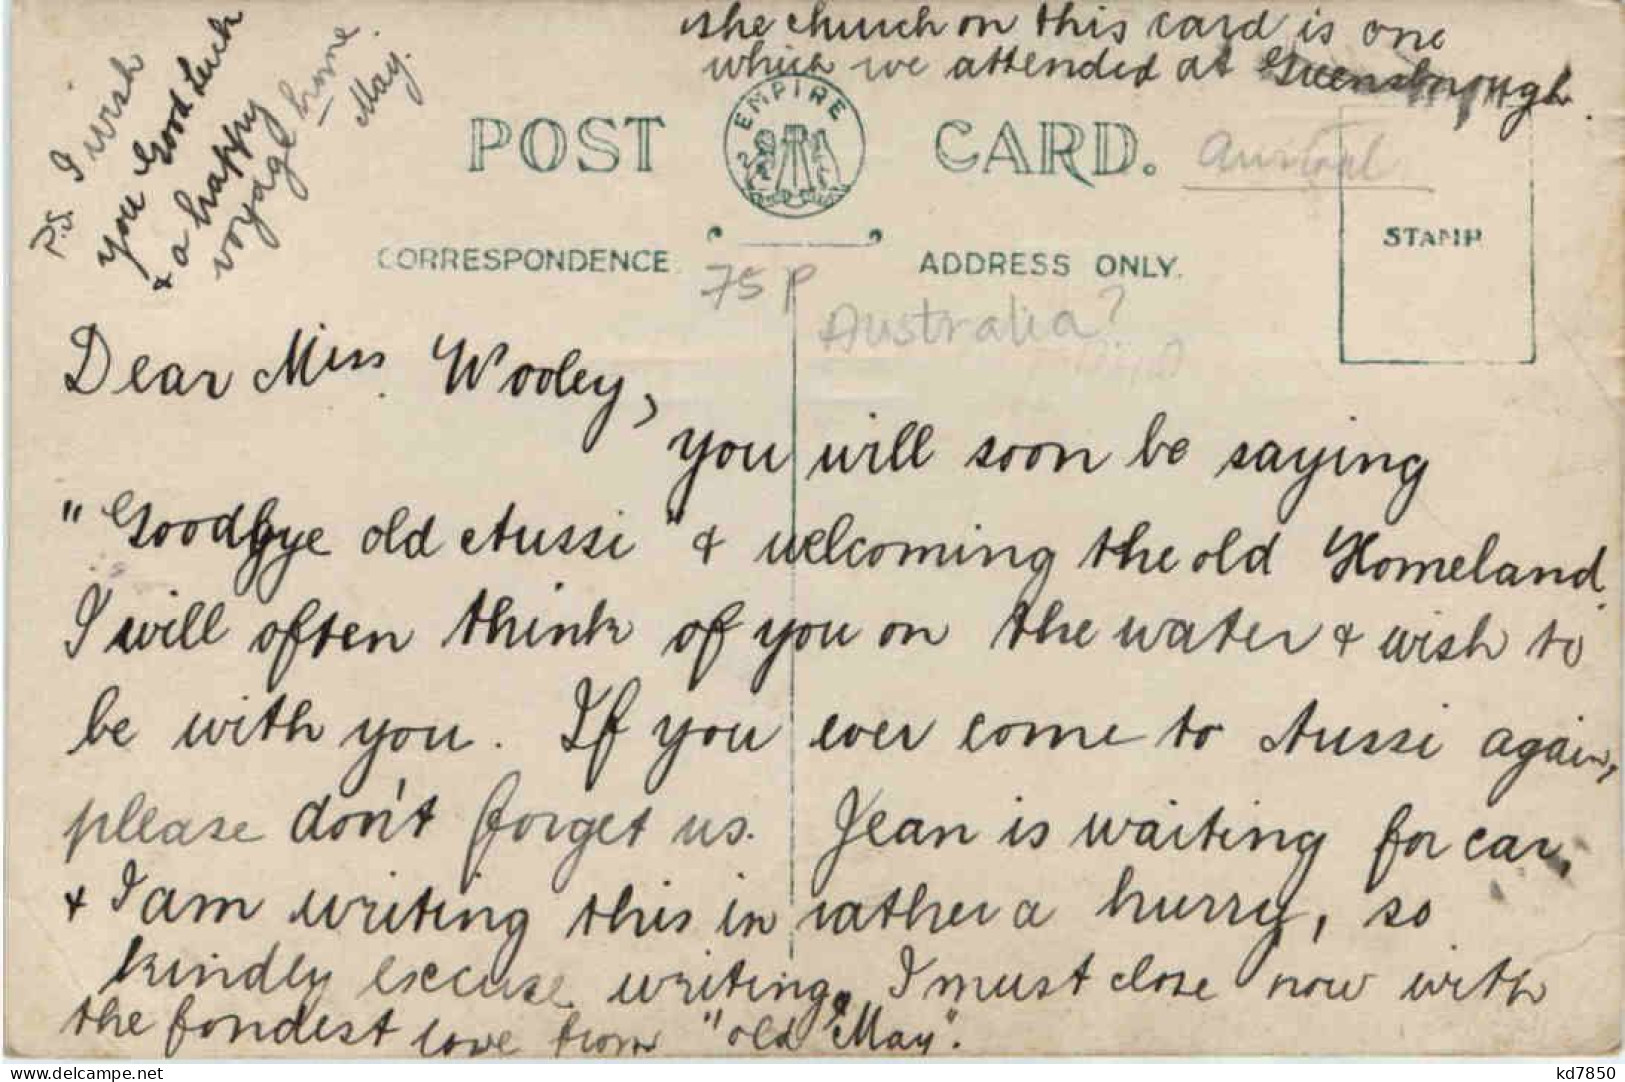 the church on this card is one
which we attended at Greensborough.
P.S. I wish
you Good Luck
& a happy
voyage home.
May.
POST CARD.
EMPIRE
STAMP
CORRESPONDENCE
ADDRESS ONLY.
75 P
Australia?
Dear Miss. Wooley,
you will soon be saying
"Goodbye old Aussi" & welcoming the old Homeland.
I will often think of you on the water & wish to
be with you. If you ever come to Aussi again,
please don't forget us. Jean is waiting for car,
& I am writing this in rather a hurry, so
kindly excuse writing. I must close now with
the fondest love from "old May".
www.delcampe.net
kd7850